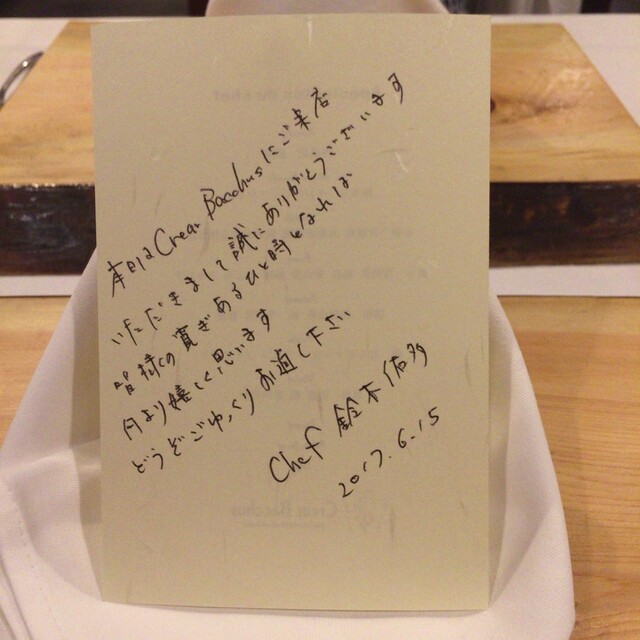 本日は Creai Bacchusにご来店
いただきまして誠にありがとうございます
皆様の寛ぎあるひと時となれば
何より嬉しく思います
どうぞごゆっくりお過し下さい
Chef 鈴木佑多
2017.6.15
Creai Bacchus